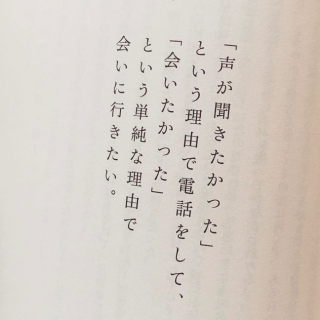 「声が聞きたかった」
という理由で電話をして、
「会いたかった」
という単純な理由で
会いに行きたい。